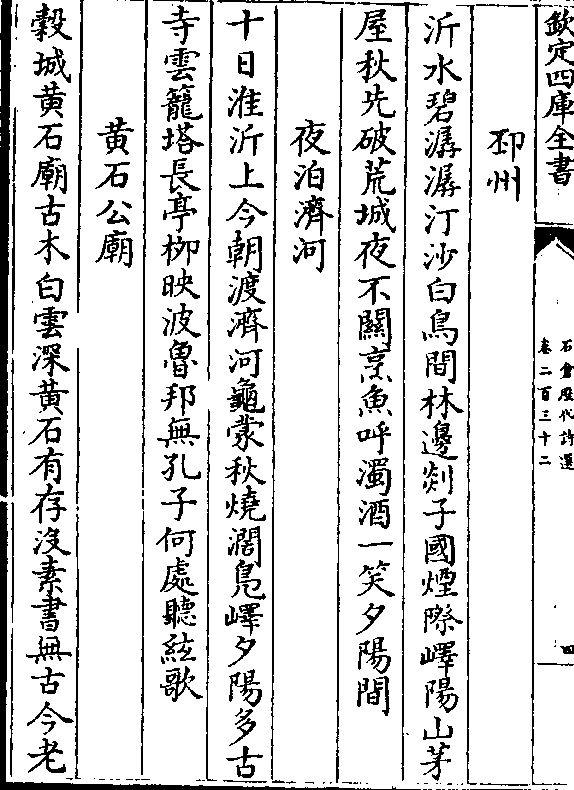 欽定四庫全書
石倉歷代詩選
卷二百三十二
四
邳州
沂水碧潺潺汀沙白鳥間林邊郯子國煙際嶧陽山茅
屋秋先破荒城夜不關烹魚呼濁酒一笑夕陽間
夜泊濟河
十日淮沂上今朝渡濟河龜蒙秋燒濶鳧嶧夕陽多古
寺雲籠塔長亭栁映波魯邦無孔子何處聽絃歌
黄石公廟
榖城黄石廟古木白雲深黄石有存沒素書無古今老